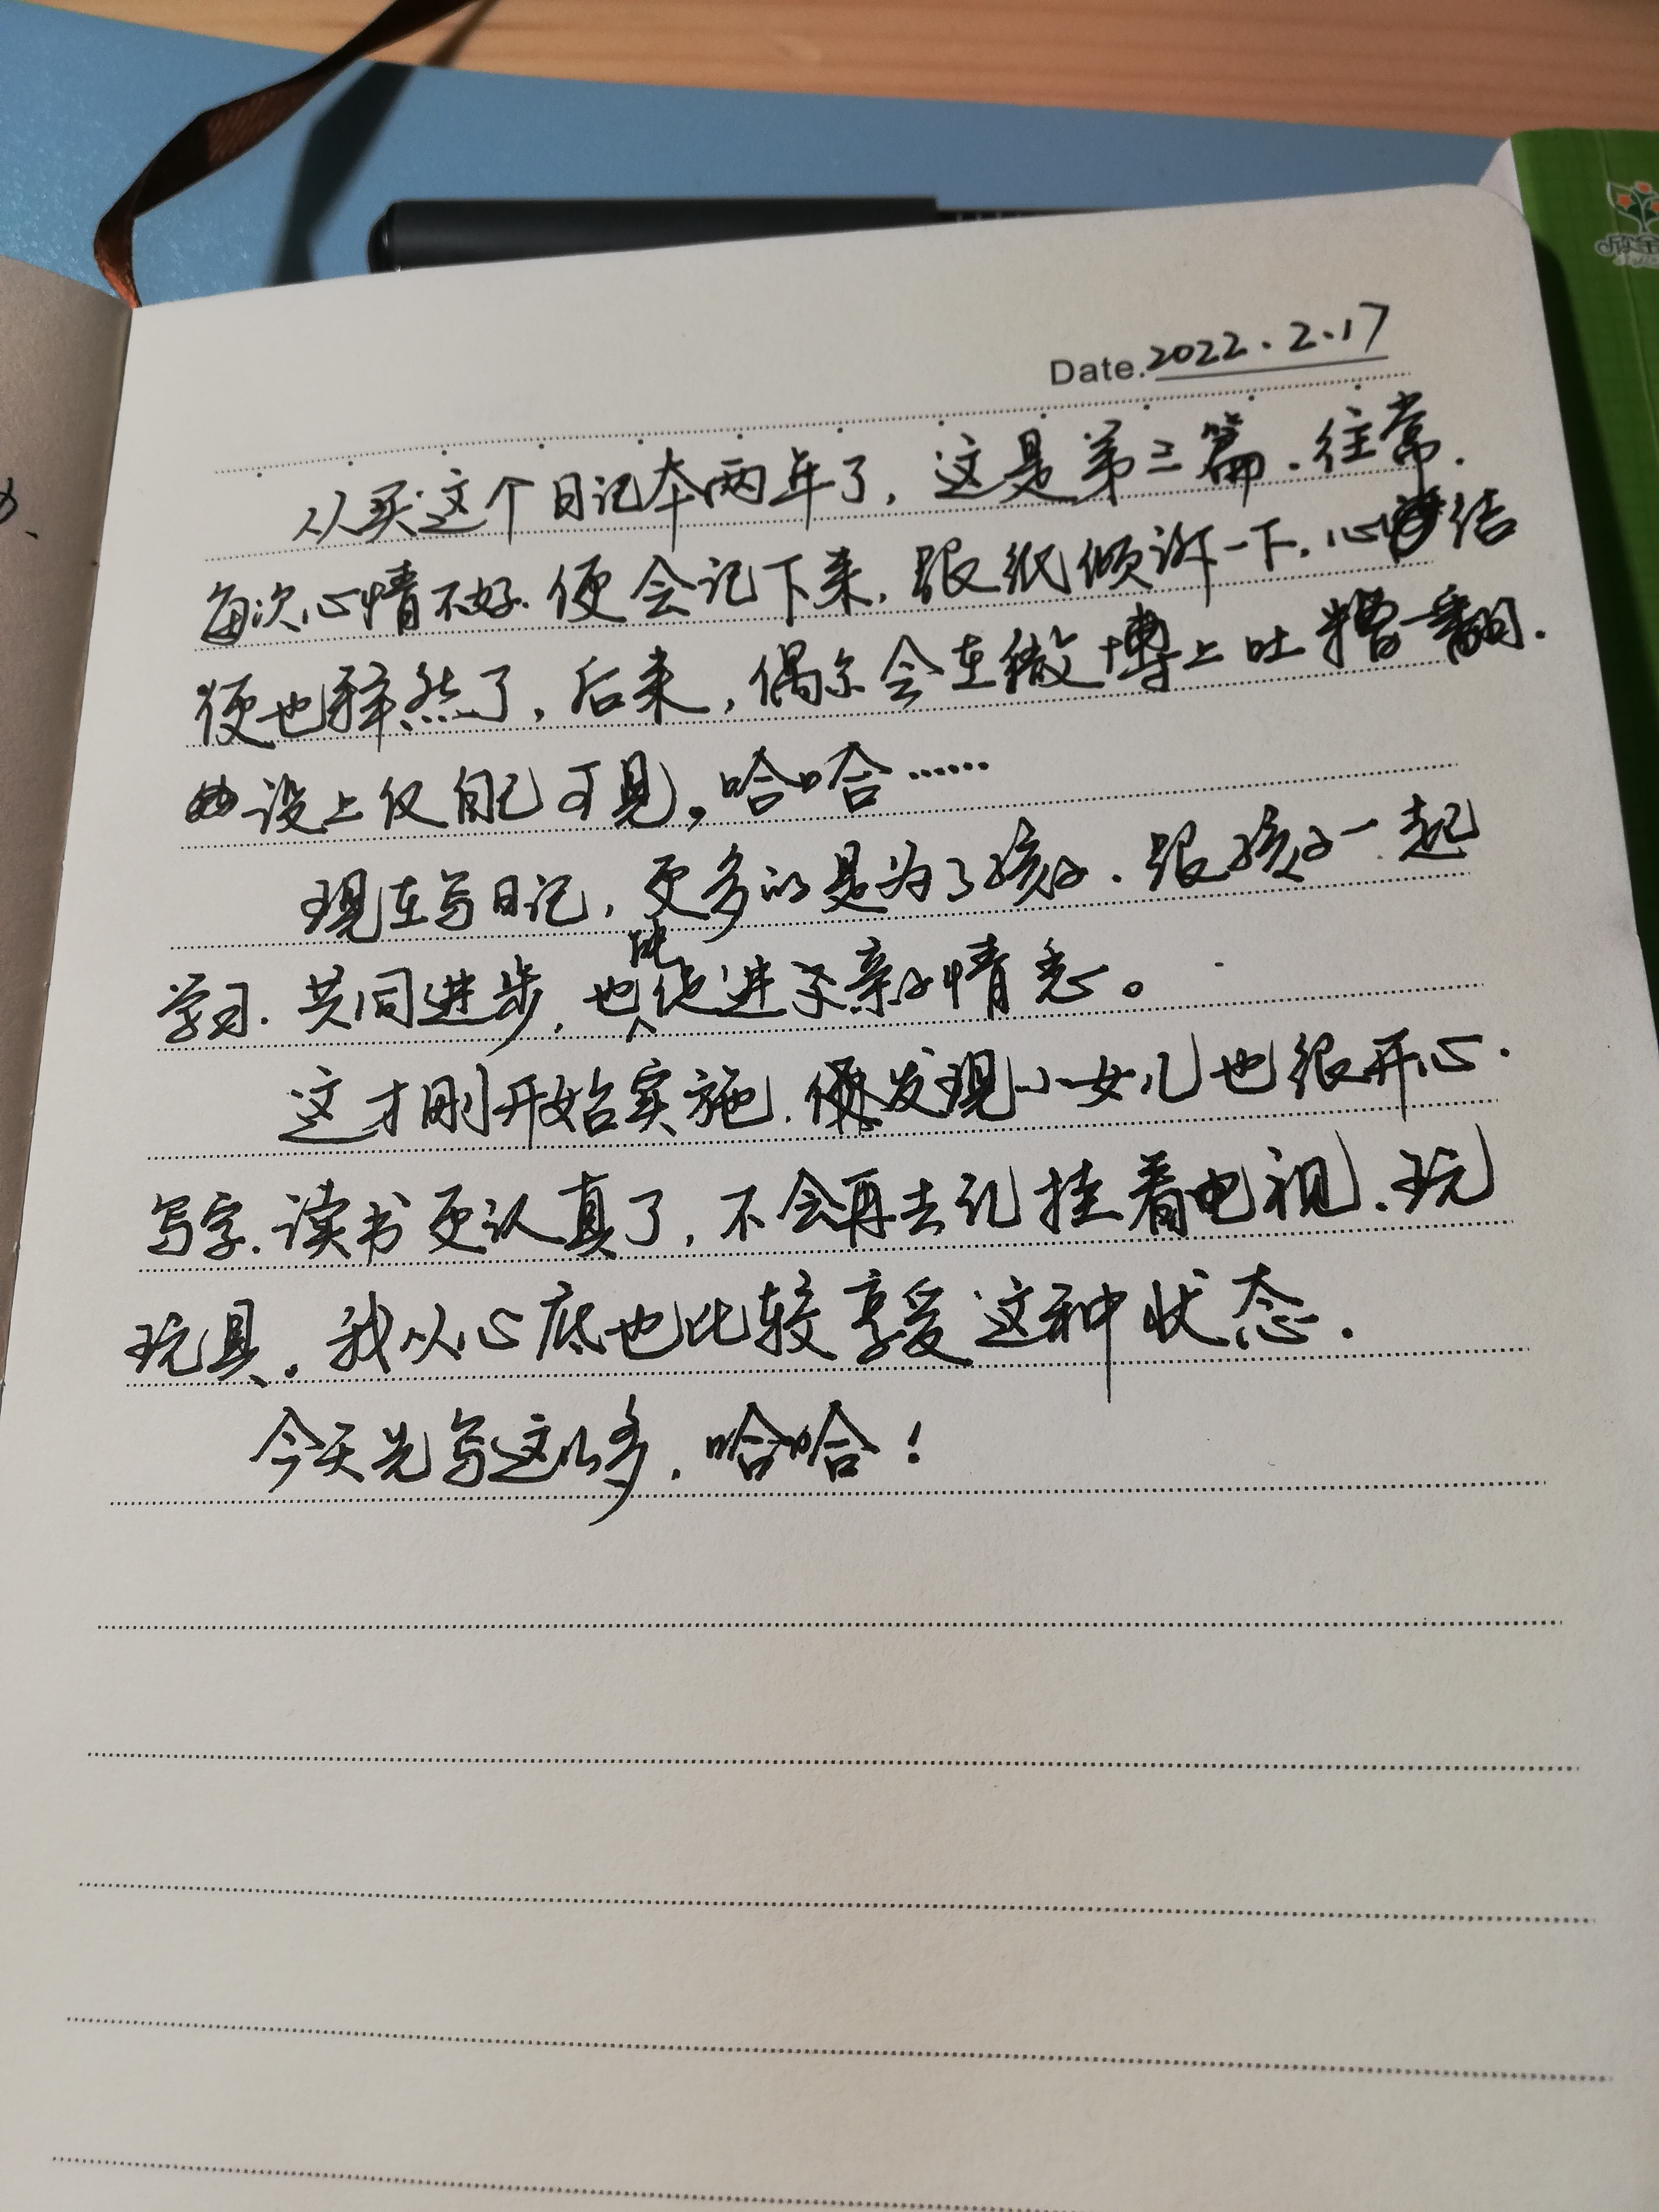 Date. 2022.2.17
从买这个日记本两年了，这是第三篇.往常.
每次心情不好.便会记下来，跟纸倾诉一下.心结
便也释然了，后来，偶尔会在微博上吐糟一翻.
设上仅自己可见。哈哈……
现在写日记，更多的是为了孩子.跟孩子一起
学习.共同进步，也能促进亲子情感。
这才刚开始实施.便发现小女儿也很开心.
写字.读书更认真了，不会再去记挂看电视.玩
玩具。我从心底也比较享受这种状态.
今天先写这么多.哈哈！